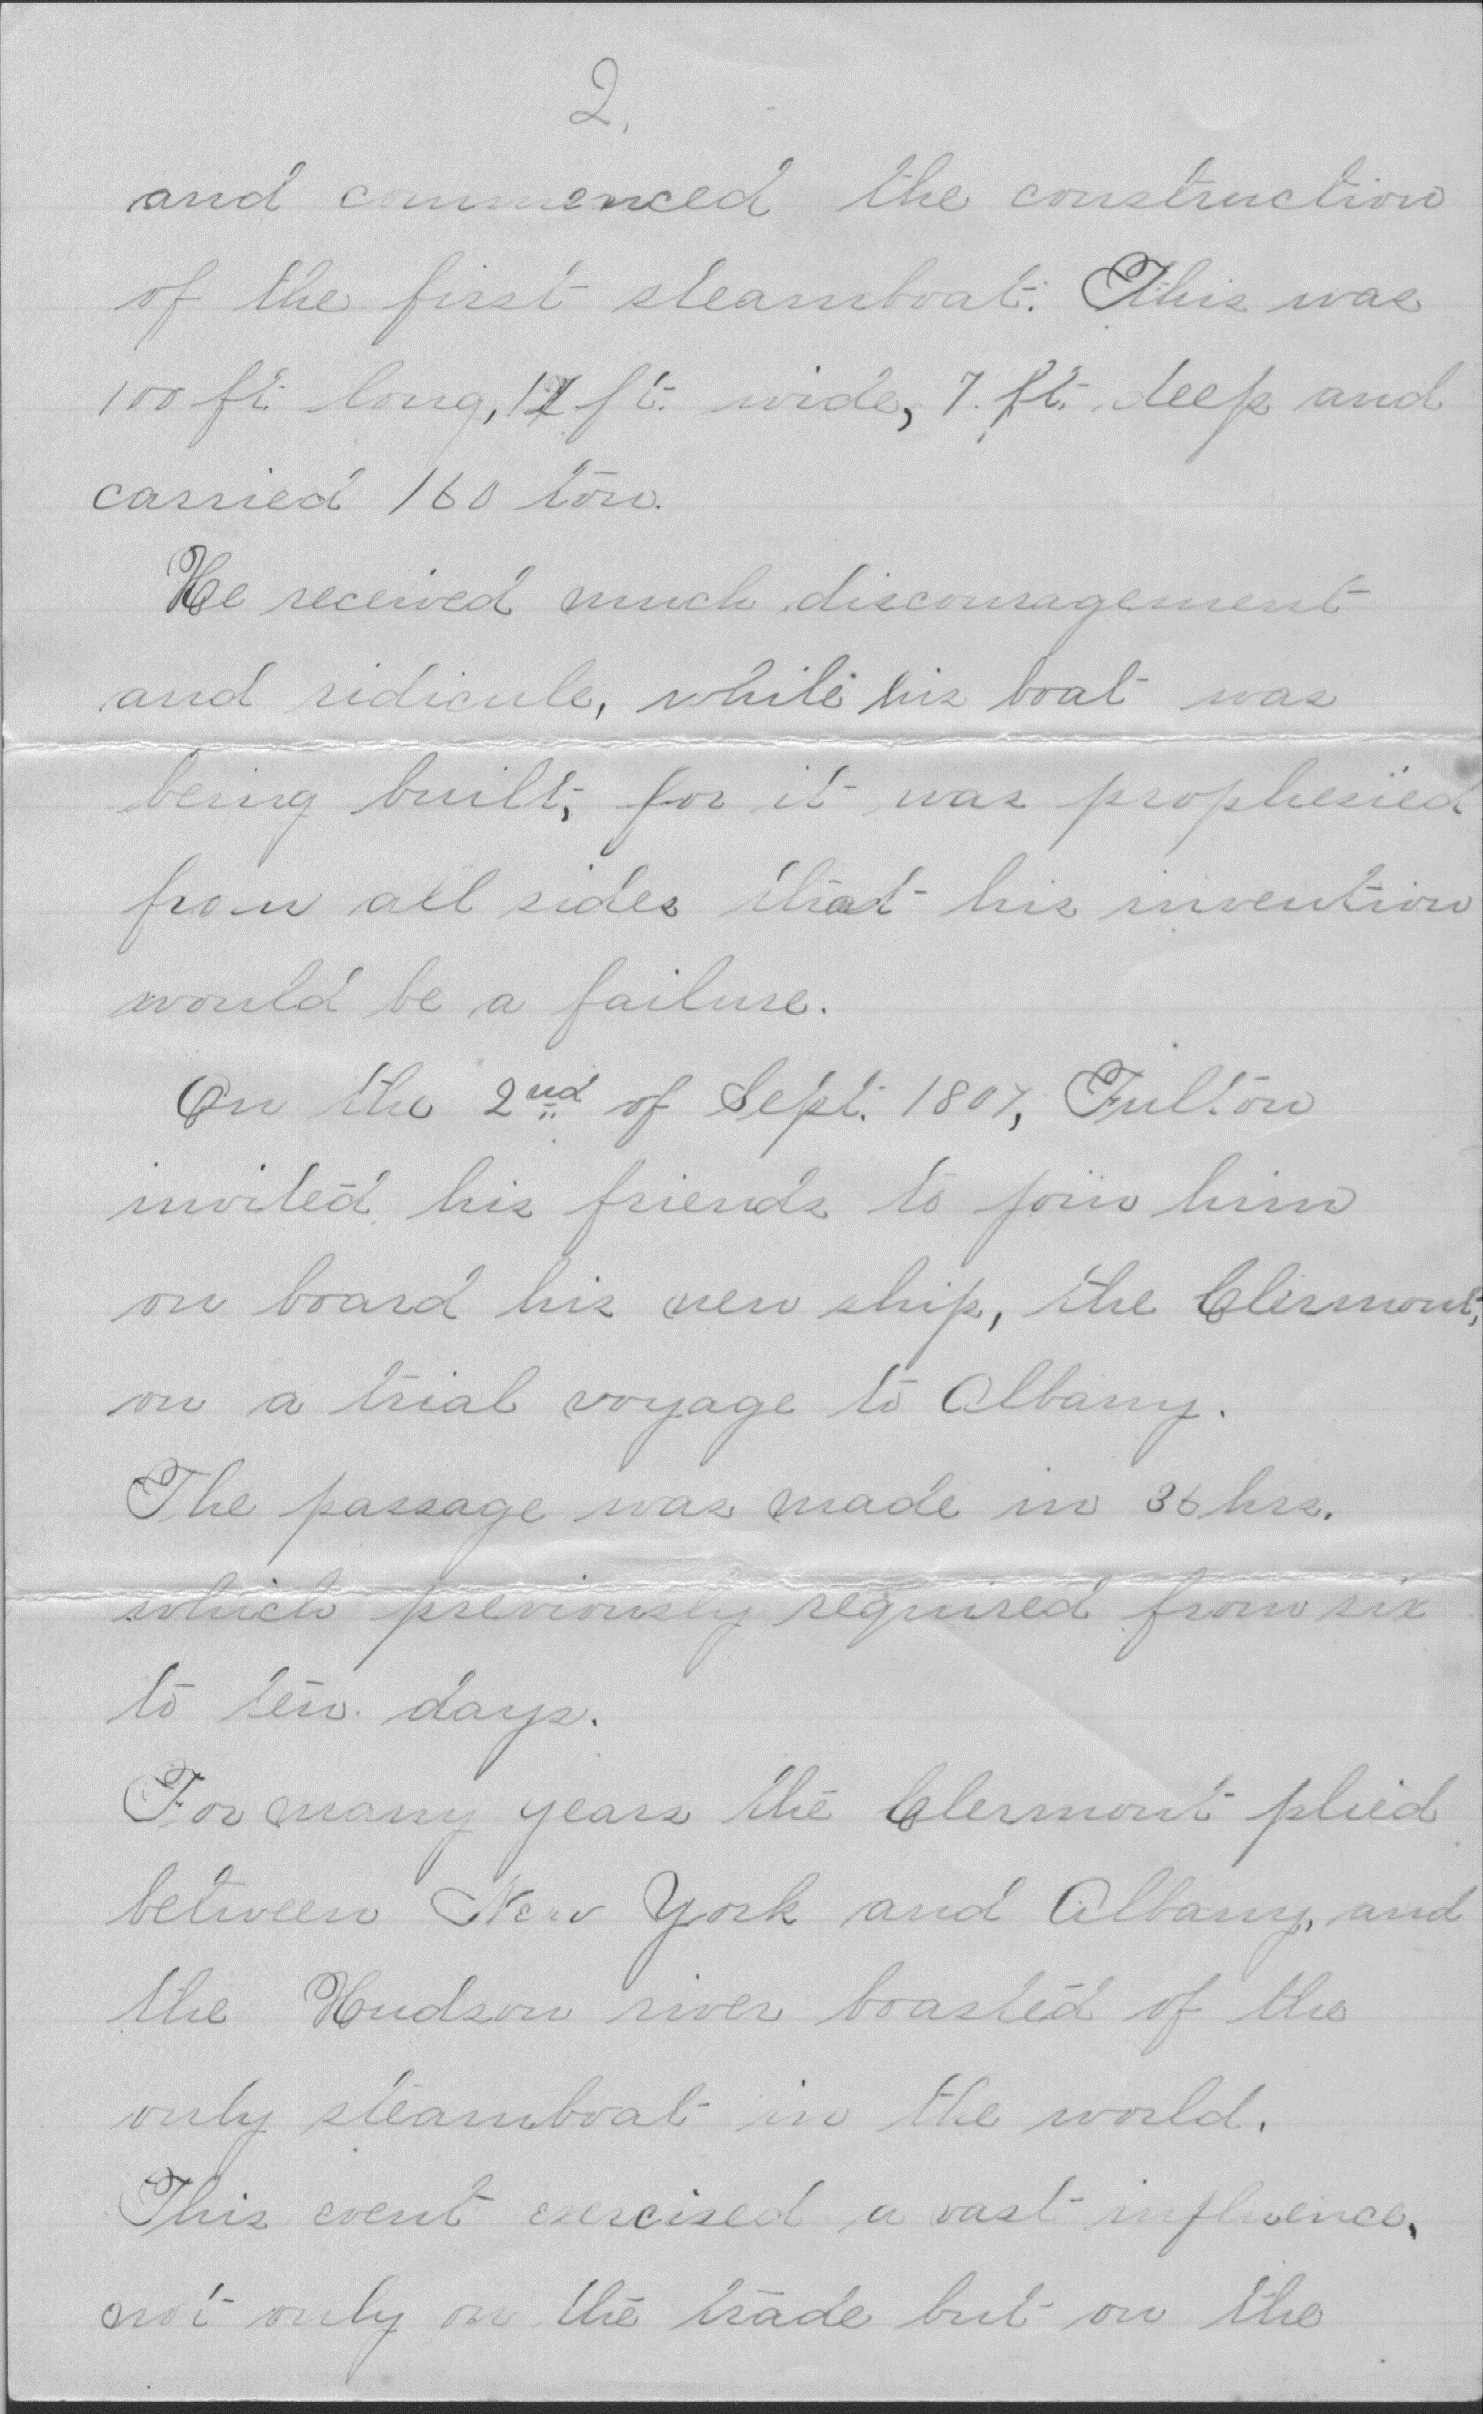 2.
and commenced the construction
of the first steamboat. This was
100 ft. long, 12 ft. wide, 7. ft. deep and
carried 160 ton.
He received much discouragement
and ridicule, while his boat was
being built, for it was prophesied
from all sides that his invention
would be a failure.
On the 2nd of Sept. 1807, Fulton
invited his friends to join him
on board his new ship, the Clermont,
on a trial voyage to Albany.
The passage was made in 36 hrs.
which previously required from six
to ten days.
For many years the Clermont plied
between New York and Albany, and
the Hudson river boasted of the
only steamboat in the world.
This event exercised a vast influence,
not only on the trade but on the